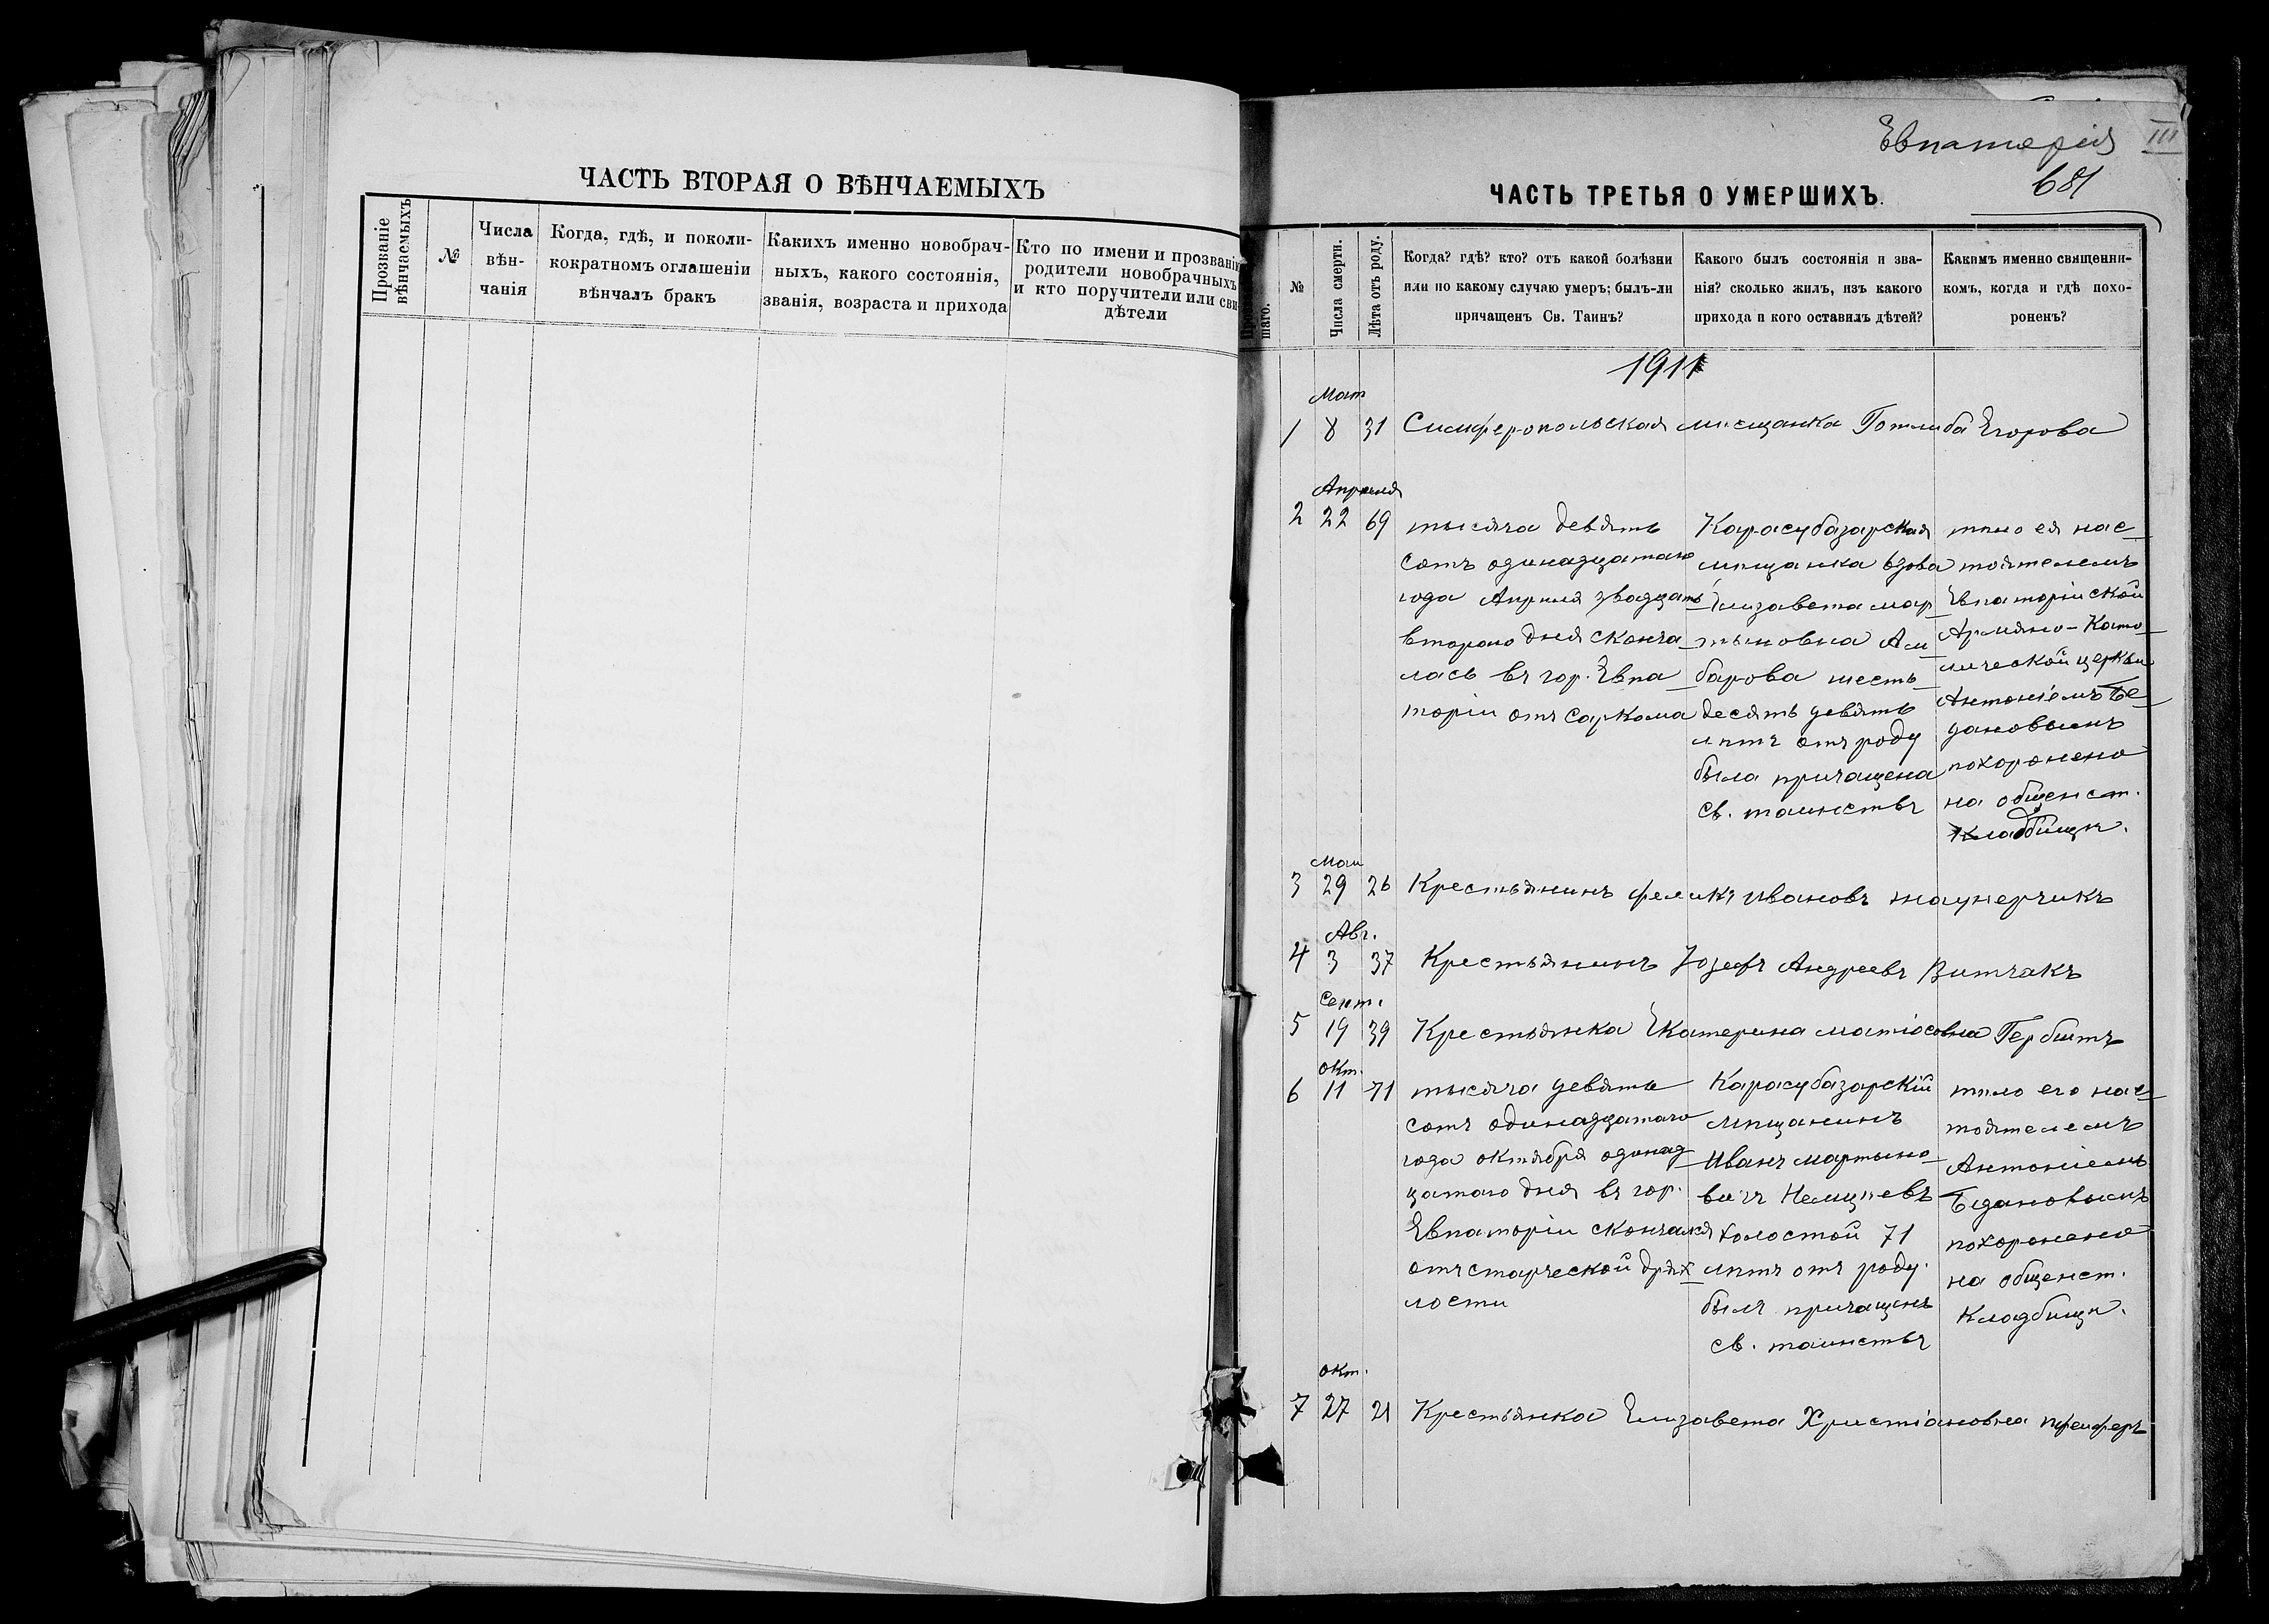 ЧАСТЬ ВТОРАЯ О ВѢНЧАЕМЫХЪ
Прозваніе вѣнчаемыхъ
№
Числа вѣн-
чанія
Когда, гдѣ, и поколи-
кократномъ оглашеніи
вѣнчалъ бракъ
Какихъ именно новобрач-
ныхъ, какого состоянія,
званія, возраста и прихода
Кто по имени и прозванію
родители новобрачныхъ
и кто поручители или сви
дѣтели
Евпаторія III
681
ЧАСТЬ ТРЕТЬЯ О УМЕРШИХЪ.
шаго.
№
Числа смерти.
Лѣта отъ роду.
Когда? гдѣ? кто? отъ какой болѣзни
или по какому случаю умеръ; былъ-ли
причащенъ Св. Таинъ?
Какого былъ состоянія и зва-
нія? сколько жилъ, изъ какого
прихода и кого оставилъ дѣтей?
Какимъ именно священни-
комъ, когда и гдѣ похо-
роненъ?
1911
1 8 31 Симферопольская мѣщанка Готлиба Егорова
Апрѣля
2 22 69
тысяча девять
сотъ одинадцатаго
года Апрѣля двадцать
второго дня сконча
лась въ гор. Евпа
торіи отъ саркома
Карасубазарская
мѣщанка вдова
Елизавета мар
тыновна Ам
барова шесть
десять девять
лѣтъ отъ роду
была причащена
св. таинствъ
тѣло ея нас
тоятелемъ
Евпаторійской
Армяно-Като
лической церкви
Антоніемъ Бе
дановымъ
похоронено
на общенст.
кладбищѣ.
Маи
3 29 26 Крестьянинъ феликъ ивановъ
Авг.
4 3 37 Крестьянинъ Іозефъ Андреевъ Витчакъ
Сент.
5 19 39 Крестьянка Екатерина матіосовна Гербитъ
окт.
6 11 71
тысяча девять
сотъ одинадцатаго
года октября одинад
цатаго дня въ гор.
Евпаторіи скончался
отъ старческой дрях
лости
Карасубазарскій
мѣщанинъ
Иванъ мартыно
вичъ Немцѣевъ
холостой 71
лѣтъ отъ роду.
былъ причащенъ
св. таинствъ
тѣло его нас
тоятелемъ
Антоніемъ
Бедановымъ
похоронено
на общенст.
кладбищѣ.
окт.
7 27 21 Крестьянка Елизавета Христіановна пфейферъ